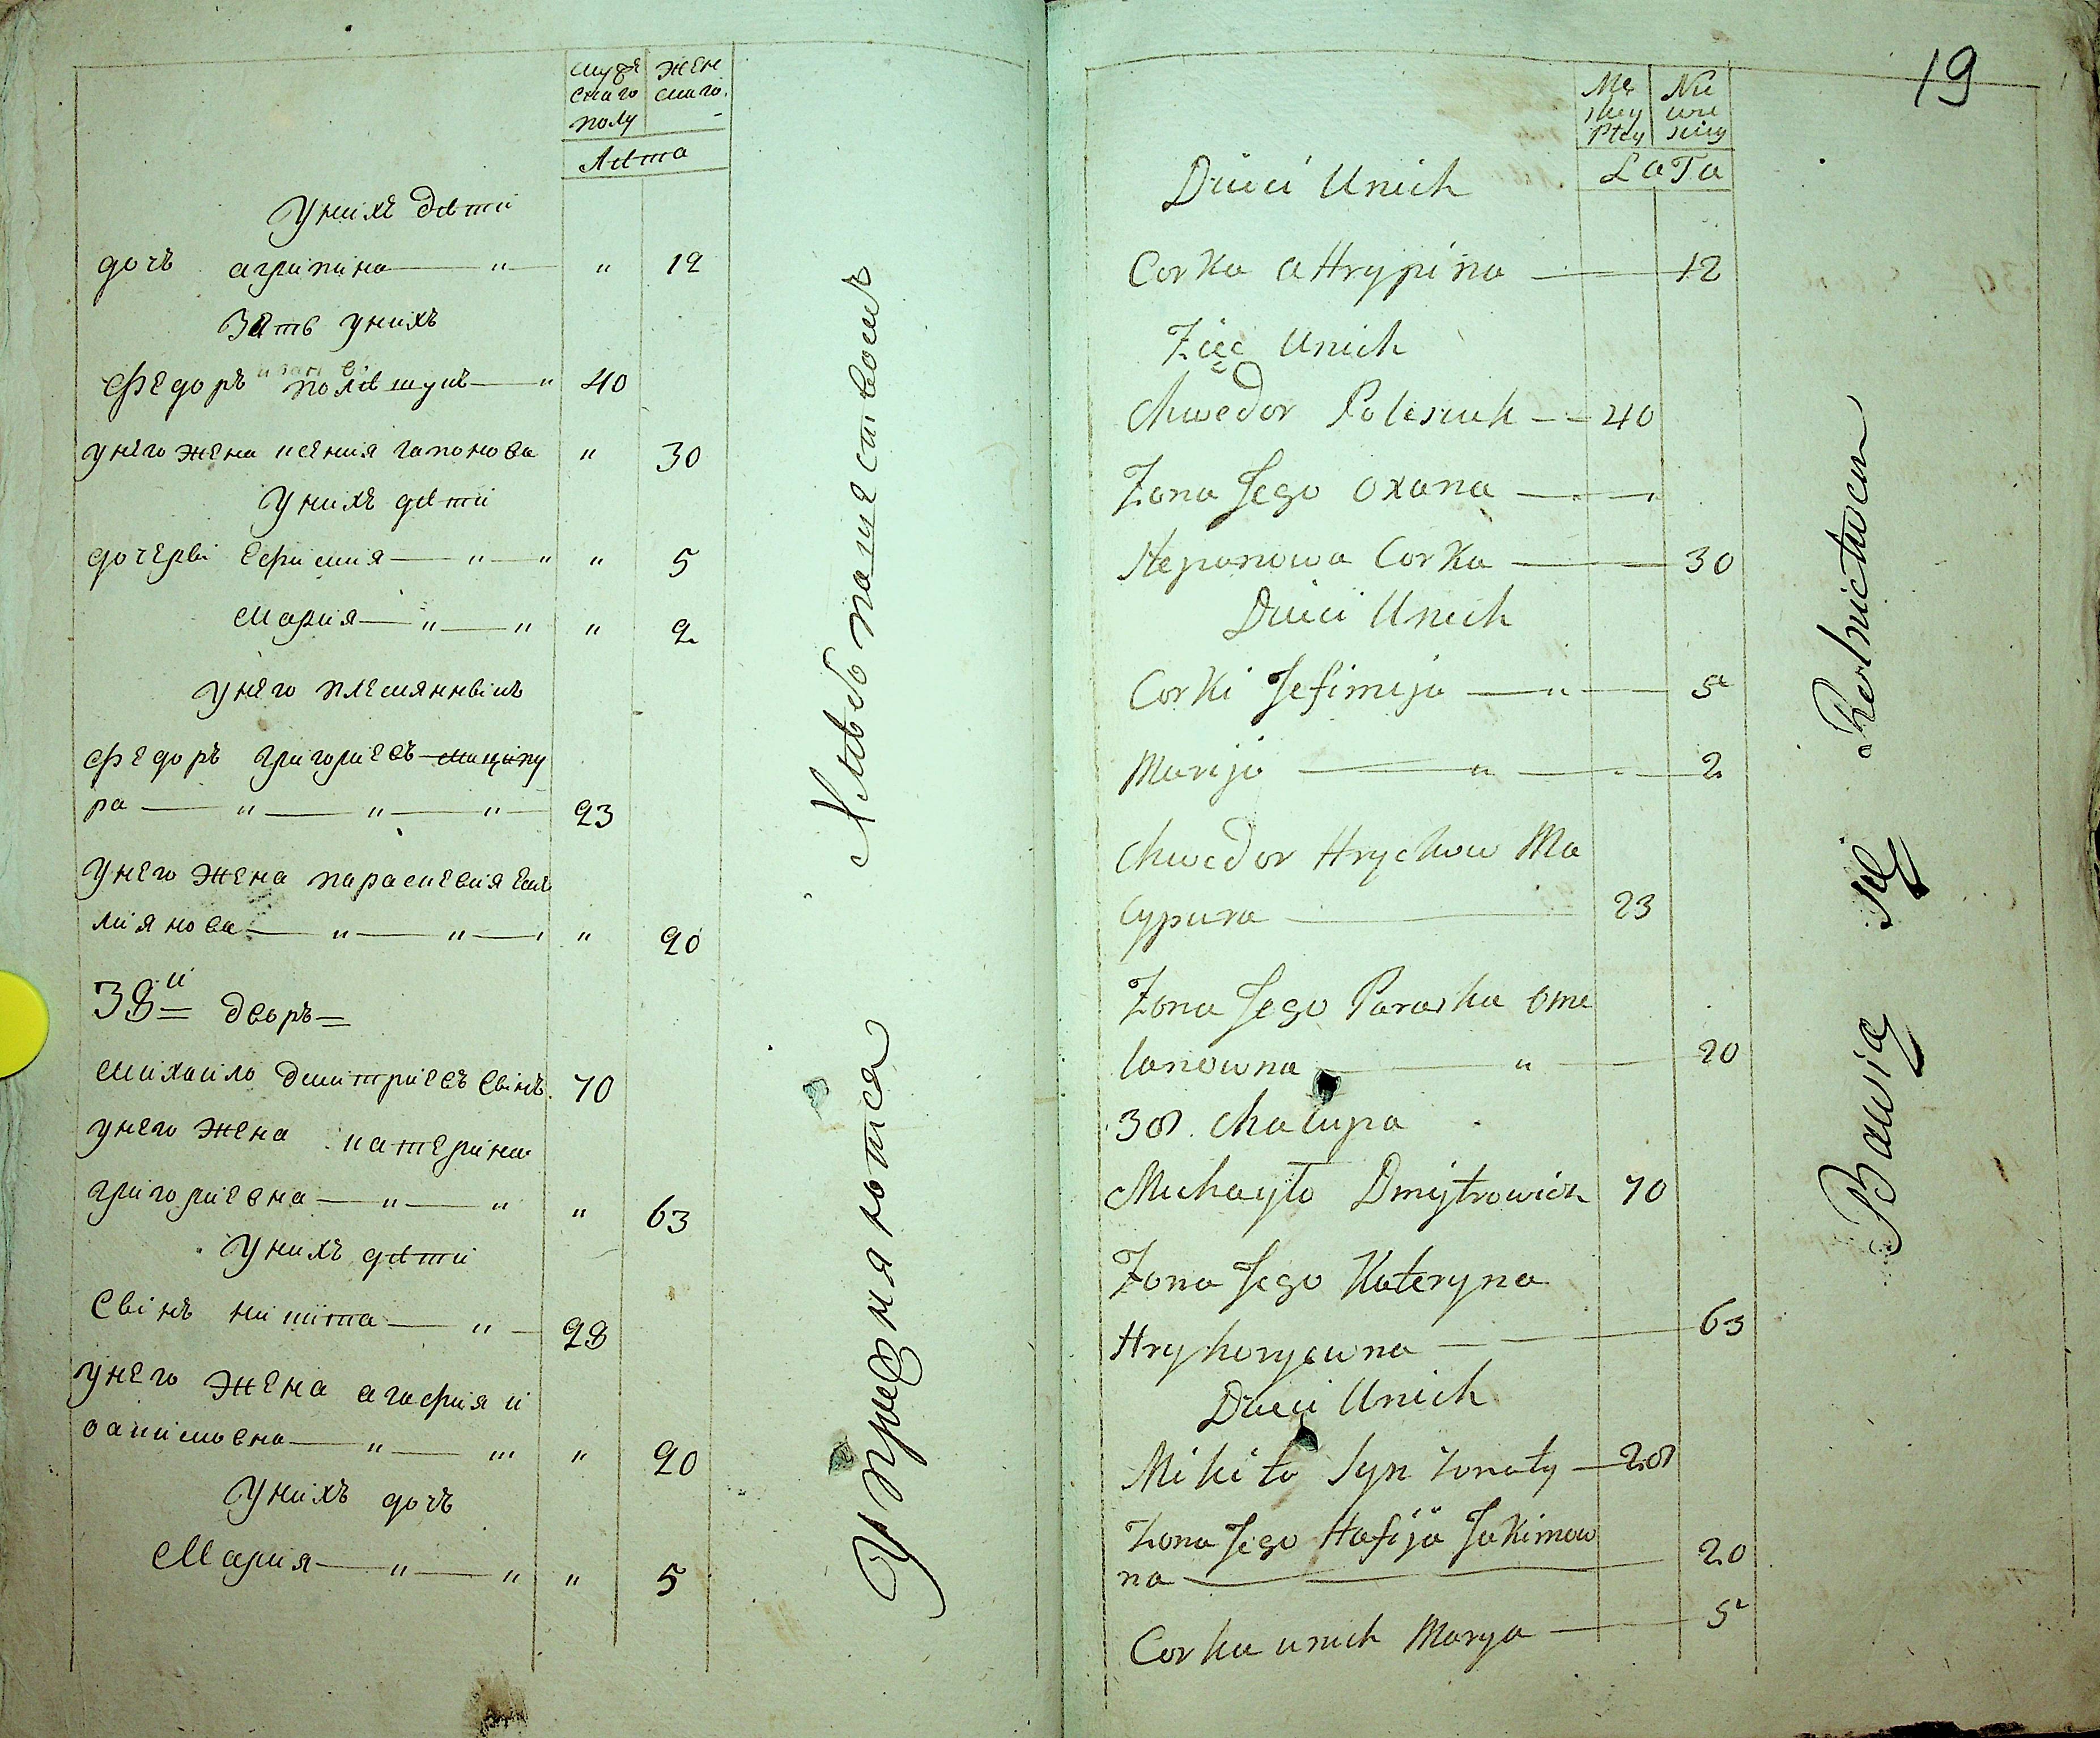 мужескаго полу
женскаго
Лѣта
У нихъ дѣти
дочь агрипина — " — " 12
Зять унихъ
Федоръ полѣщукъ — " 40
унего жена ксения гапонова " 30
У нихъ дѣти
дочерві Ефимия — " — " " 5
Мария — " — " " 2
унего племянвікъ
Федоръ григориевъ мацапу
ра — " — " — " — 23
унего жена параскевия Еме
лиянова — " — " — " 20
38й дворъ
михаило дмитриевъ Свінъ 70
унего жена катерина
григориевна — " — " " 63
У нихъ дѣти
Свінъ никита — " — 28
унего жена агафия и
оакимовна — " — " 20
Унихъ дочь
Мария — " — " " 5
Упражняютса Хлѣбопашествомъ
19
Męskey Płcy
Niewieściey
LaTa
Dzieci Unich
Corka aHrypina — 12
Zięc Unich
Chwedor Polesiuk — 40
Zona Jego oxana —
Heponowa Corka — 30
Dzieci Unich
Corki Jefimija — " — 5
Marija — " — 2
Chwedor Hryckow Ma
cypura — 23
Zona Jego Paraska ome
lanowna — " — 20
38. Chałupa
Michayło Dmytrowicz 70
Zona Jego Kateryna
Hryhoryewna — 63
Dzieci Unich
Mikita Syn zonaty — 28
Zona Jego Hafija Jakimow
na — 20
Corka unich Marya — 5
Bawią się Rolnictwem